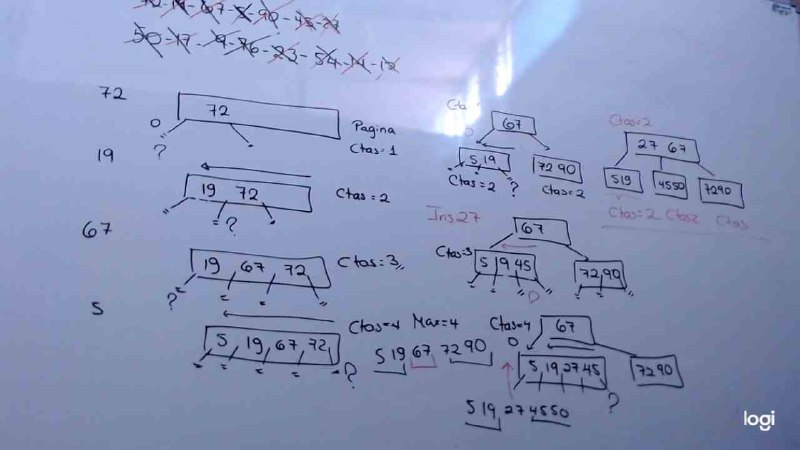 72 - 19 - 67 - 5 - 90 - 45 - 27
50 - 17 - 9 - 76 - 23 - 54 - 14 - 12
72
72
0
?
Pagina
Ctas=1
19
19 72
Ctas=2
=?
67
19 67 72
Ctas=3
?
5
5 19 67 72
Ctas=4 Max=4
?
5 19 67 72 90
Cta
67
5 19
72 90
Ctas=2 ?
Ctas=2
Ctas=2
27 67
5 19
45 50
72 90
Ctas=2 Ctas2 Ctas
Ins 27
67
Ctas=3
5 19 45
72,90
Ctas=4
67
0
5,19,27,45
72 90
?
5 19,27 45 50
logi